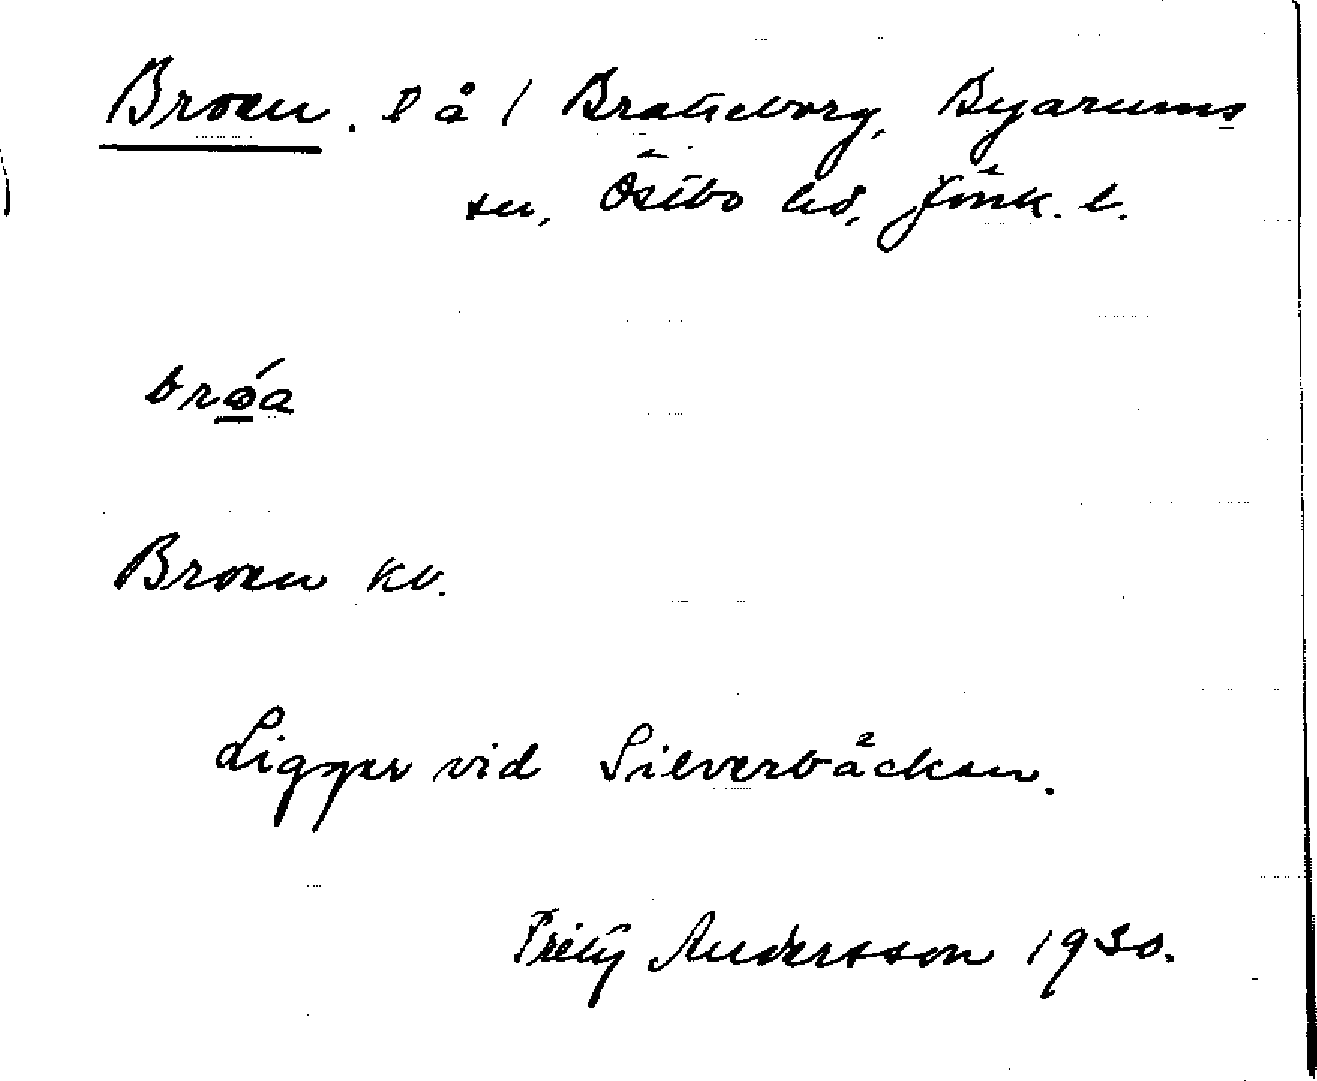 Broen. l å / Bratteborg, Byarums
sn, Östbo hd, Jönk. l.
brǿa
Broen kv.
Ligger vid Silverbäcken.
Andersson 1930.